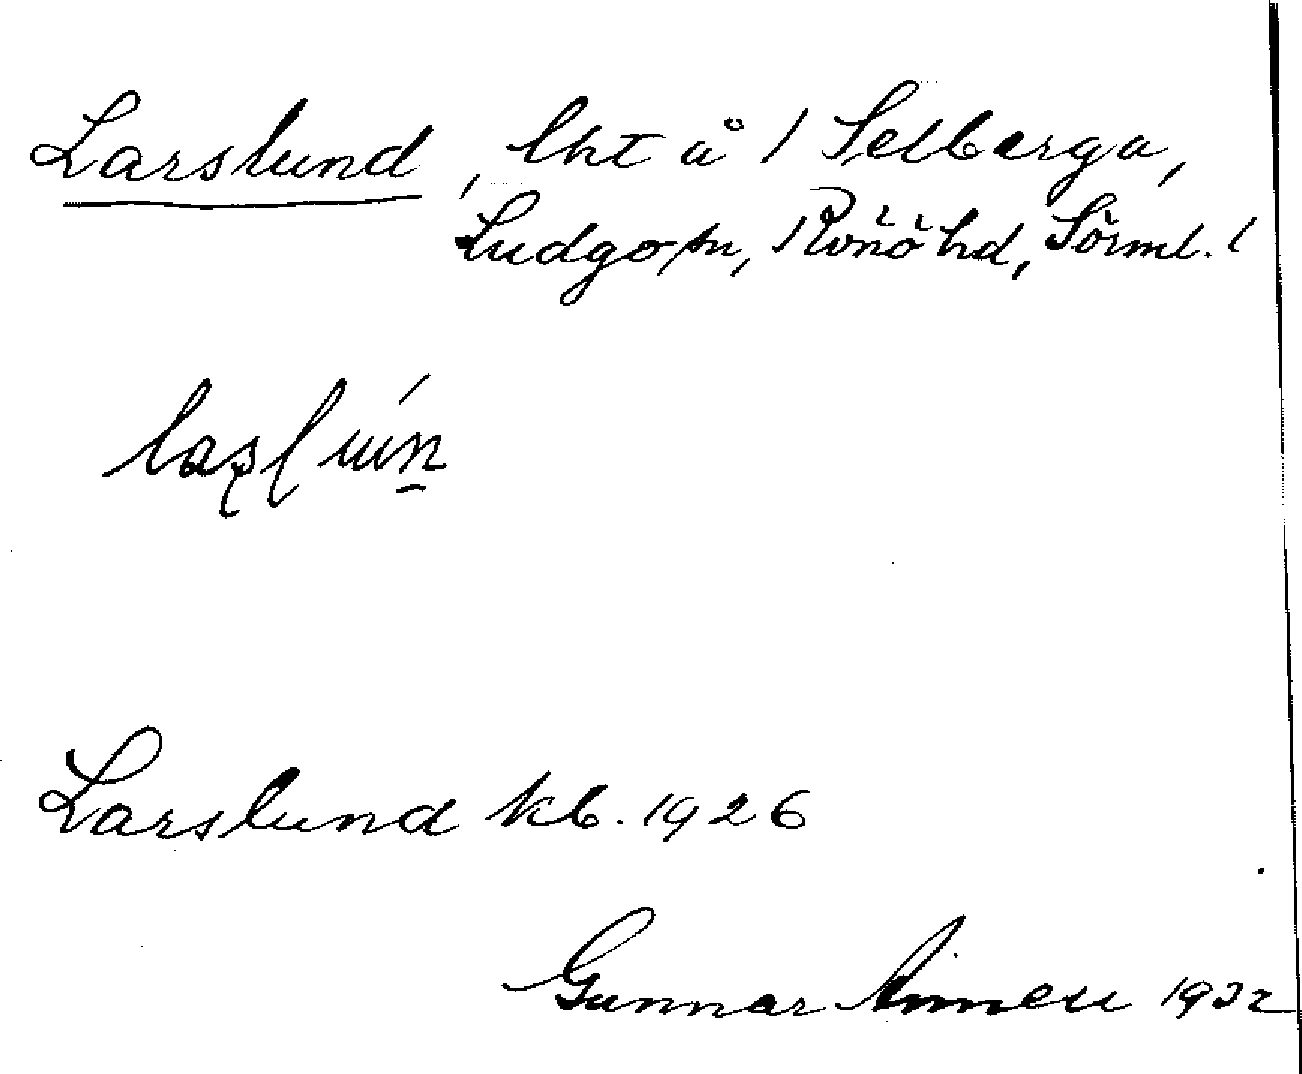 Larslund, lht å / Selberga,
Ludgo sn, Rönö hd, Sörml. /
Larslund kb. 1926
Gunnar Linnell 1932